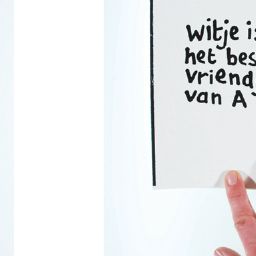 witje is
het bes
vriend
van A